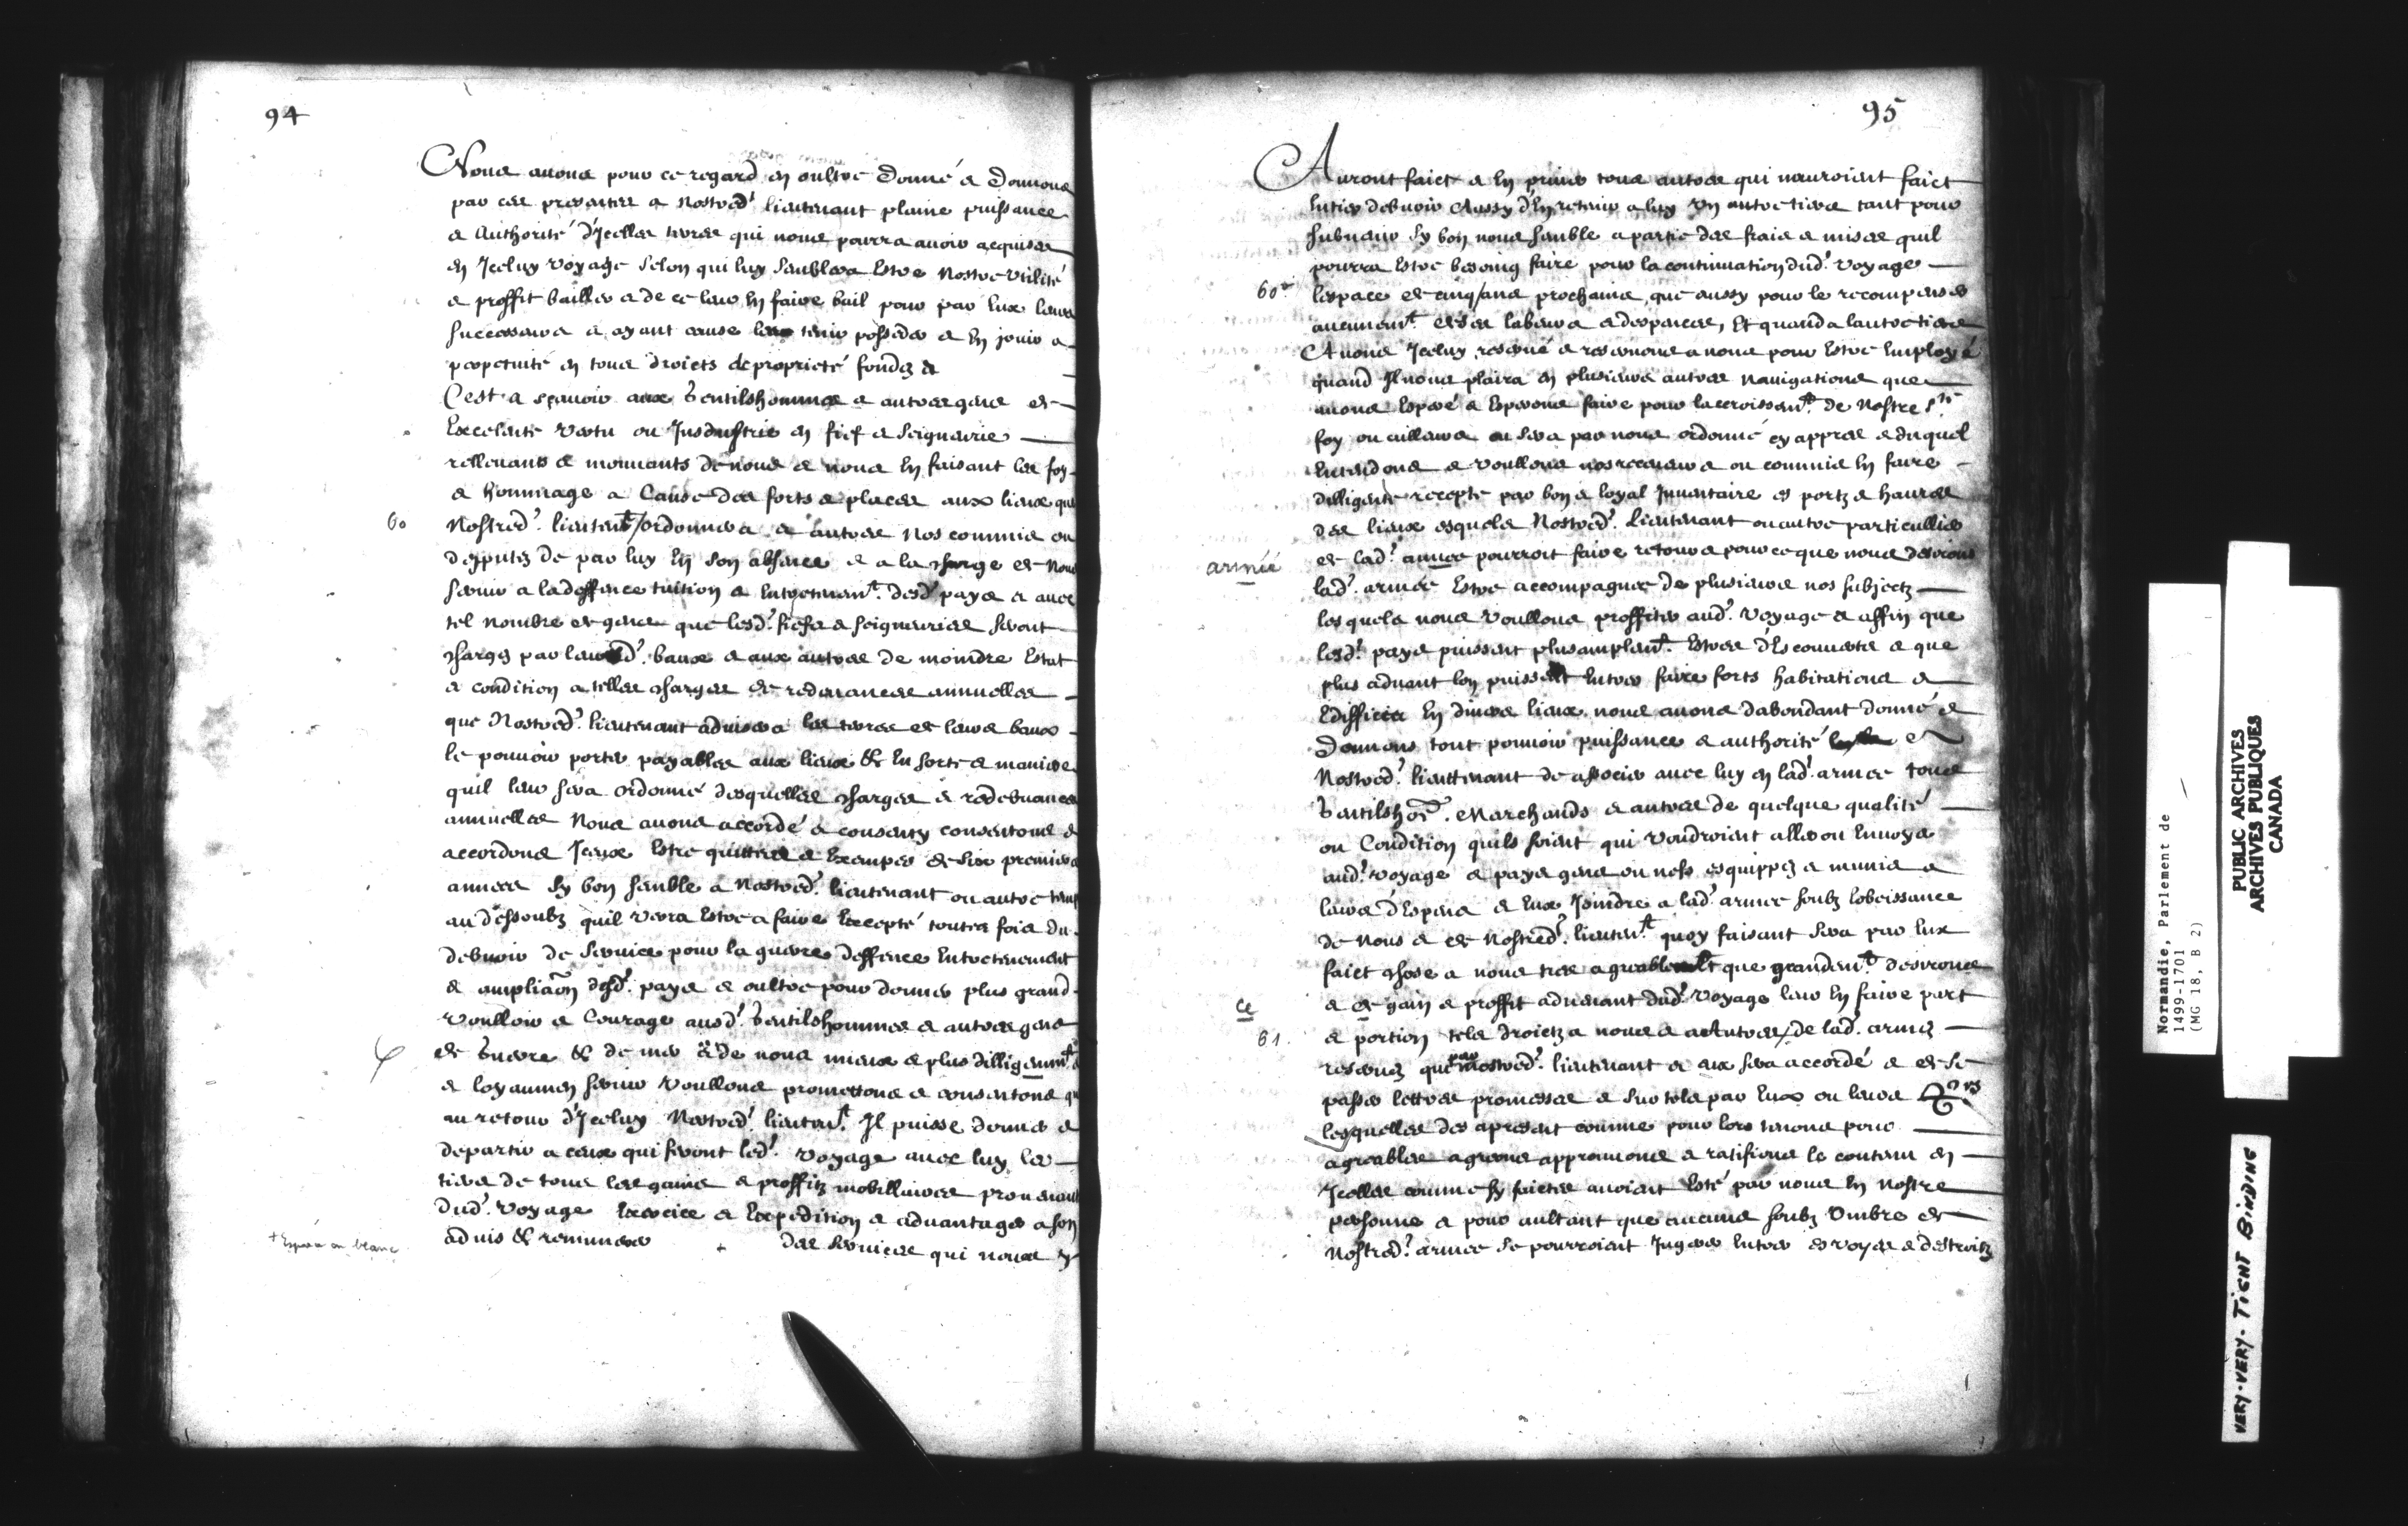 94
Nous auons pour ce regard en oultre donné & donnons
par ces presentes a nostred.t lieutenant plaine puissance
& authorité d'Jcelles terres qui nous pourra auoir acquises
en Jceluy voyage selon qui luy semblera Estre nostre vtilité
& proffit bailler & de ce leur En faire bail pour par Eux leurs
successeurs & ayant cause les tenir posseder & En jouir a
perpetuité en tous droicts de propriété fondez &
C'est a sçauoir aux Gentilshommes & autres gens de
Excelente vertu ou Jndustrie en fief & seigneurie
rellevants & mouuants de nous & nous En faisant les foy
& hommage a Cause des forts & places aux lieux que
60 Nostred.t lieuten.t/ordonnera & autres nos commis ou
depputez de par luy En son absence & a la charge de nous
seruir a la deffence tuition & Entretenem.t desd.t pays & auec
tel nombre de gens que lesd.t fiefs & seigneuries seront
chargez par leursd.t baux & aux autres de moindre Estat
& condition a telles charges de redeuances annuelles
que Nostred.t lieutenant aduisera les terres de leurs baux
le pouuoir porter payables aux lieux & En sorte & maniere
quil leur sera ordonné desquelles charges & redebuances
annuelles Nous auons accordé & consenty consentons &
accordons Jceux Estre quittes & Exempts de six premieres
annees sy bon semble a nostred.t lieutenant ou autre temps
au dessoubz quil verra Estre a faire Excepté toutes fois du
debuoir de seruice pour la guerre deffence Entretenement
& ampliaōn desd.t pays & oultre pour donner plus grand
vouloir & Courage ausd.t Gentilshommes & autres gens
de Guerre & de mer & de nous mieux & plus dilligemm.t
& loyaumen seruir voullons promettons & consentons q
au retour d'Jceluy Nostred.t lieuten.t Jl puisse donner &
departir a ceux qui feront led.t voyage auec luy le
tiers de tous les gains & proffitz mobilliaires prouenant
dud.t voyage Exercice & Expedition & aduantages a son
+ Espace en blanc
aduis & remunerer + des seruices qui nous y
95
Auront faict & En priuer tous autres qui nauroient faict
Entier debuoir Aussy d'En retenir a luy vn autre tiers tant pour
subuenir sy bon nous semble a partie des frais & mises quil
pourra Estre besoing faire pour la continuation dud.t voyage
60 lespace de cinq/ans prochains, que aussy pour le recompenser
aucunem.t de ses labeurs & despences, Et quand a lautre tiers
Auons Jceluy reserué & reseruons a nous pour Estre Employé
quand Jl nous plaira en plusieurs autres nauigations que
auons Esperé & Esperons faire pour laccroissem.t de Nostre s.te
foy ou aillieurs ou sera par nous ordonné cy appres & duquel
Entendons & voullons nos receueurs ou commis En faire
dilligente recepte par bon & loyal Jnuentaire es portz & haures
des lieux esquels Nostred.t Lieutenant ou autre particullier
armée
de lad.t armee pourroit faire retour & pour ce que nous desirons
lad.t armée Estre accompagnee de plusieurs nos subjectz
lesquels nous voullons proffiter aud.t voyage & affin que
lesd.t pays puissent plus amplem.t Estres descouuerts & que
plus aduant lon puisse Entrer faire forts habitations &
Edifficie En diuers lieux nous auons dabondant donné &
Donnons tout pouuoir puissance & authorité
Nostred.t lieuttenant de associer auec luy en lad.t armee tous
Gentilsho.̄ Marchands & autres de quelque qualité
ou Condition quils soient qui voudroient aller ou Enuoyer
aud.t voyage & payer gens ou nefs esquippez & munis a
leurs d'Espens & Eux Joindre a lad.t armee soubz lobeissance
de Nous & de Nostred.t lieuten.t quoy faisant sera par Eux
faict chose a nous tres agreable que grandem.t desirons
ce
& de gain & proffit aduenant dud.t voyage leur En faire part
61. & portion tels droictz a nous & a Autres/de lad. armee
reseruez que par nostred.t lieutenant & aux sera accordé & de se
passer lettres promesses & sur tels par Eux ou leurs
lesquelles des apresent comme pour lors tenons pour
agreables agreons approuuons & ratifions le contenu en
Jcelles comme sy faictes auoient Esté par nous En nostre
personne & pour aultant que aucuns soubz vmbre de
Nostred.t armee se pourroient Jngerer Entrer es voyes & destroitz
Normandie, Parlement de
1499-1701
(MG 18, B 2)
PUBLIC ARCHIVES
ARCHIVES PUBLIQUES
CANADA
VERY-VERY-TIGHT BINDING